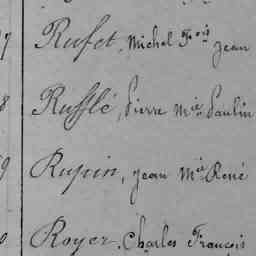 7 Rufet, Michel Fois Jean
8 Rufflé, Pierre Mie Paulin
9 Rupin, Jean Mie René
0 Royer, Charles François